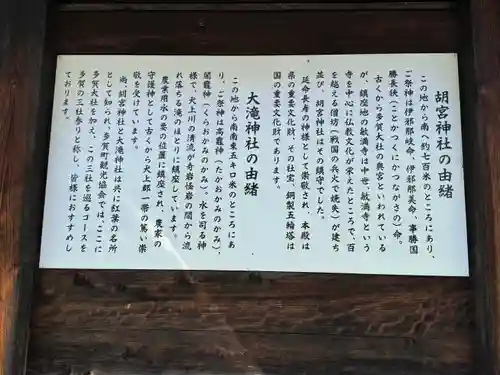 胡宮神社の由緒
この地から南へ約七百米のところにあり、
ご祭神は伊邪那岐命、伊邪那美命、事勝国
勝長狭(ことかつくにかつながさの)命。
古くから多賀大社の奥宮といわれている
が、鎮座地の敏満寺は中世、敏満寺という
寺を中心に仏教文化が栄えたところで、百
を超える僧坊(戦国の兵火で焼失)が建ち
並び、胡宮神社はその鎮守でした。
延命長寿の神様として崇敬され、本殿は
県の重要文化財、その社宝、銅製五輪塔は
国の重要文化財であります。
大滝神社の由緒
この地から南南東五キロ米のところにあ
り。ご祭神は高龗神(たかおかみのかみ)、
闇龗神(くらおかみのかみ)。水を司る神
様で、犬上川の清流が奇岩怪岩の間から流
れ落ちる滝のほとりに鎮座しています。
農業用水の要の位置に鎮座され、農家の
守護神として古くから犬上郡一帯の篤い崇
敬を受けています。
尚、胡宮神社と大滝神社は共に紅葉の名所
として知られ、多賀町観光協会では、ここに
多賀大社を加え、この三社を巡るコースを
多賀の三社参りと称し、皆様におすすめし
ております。